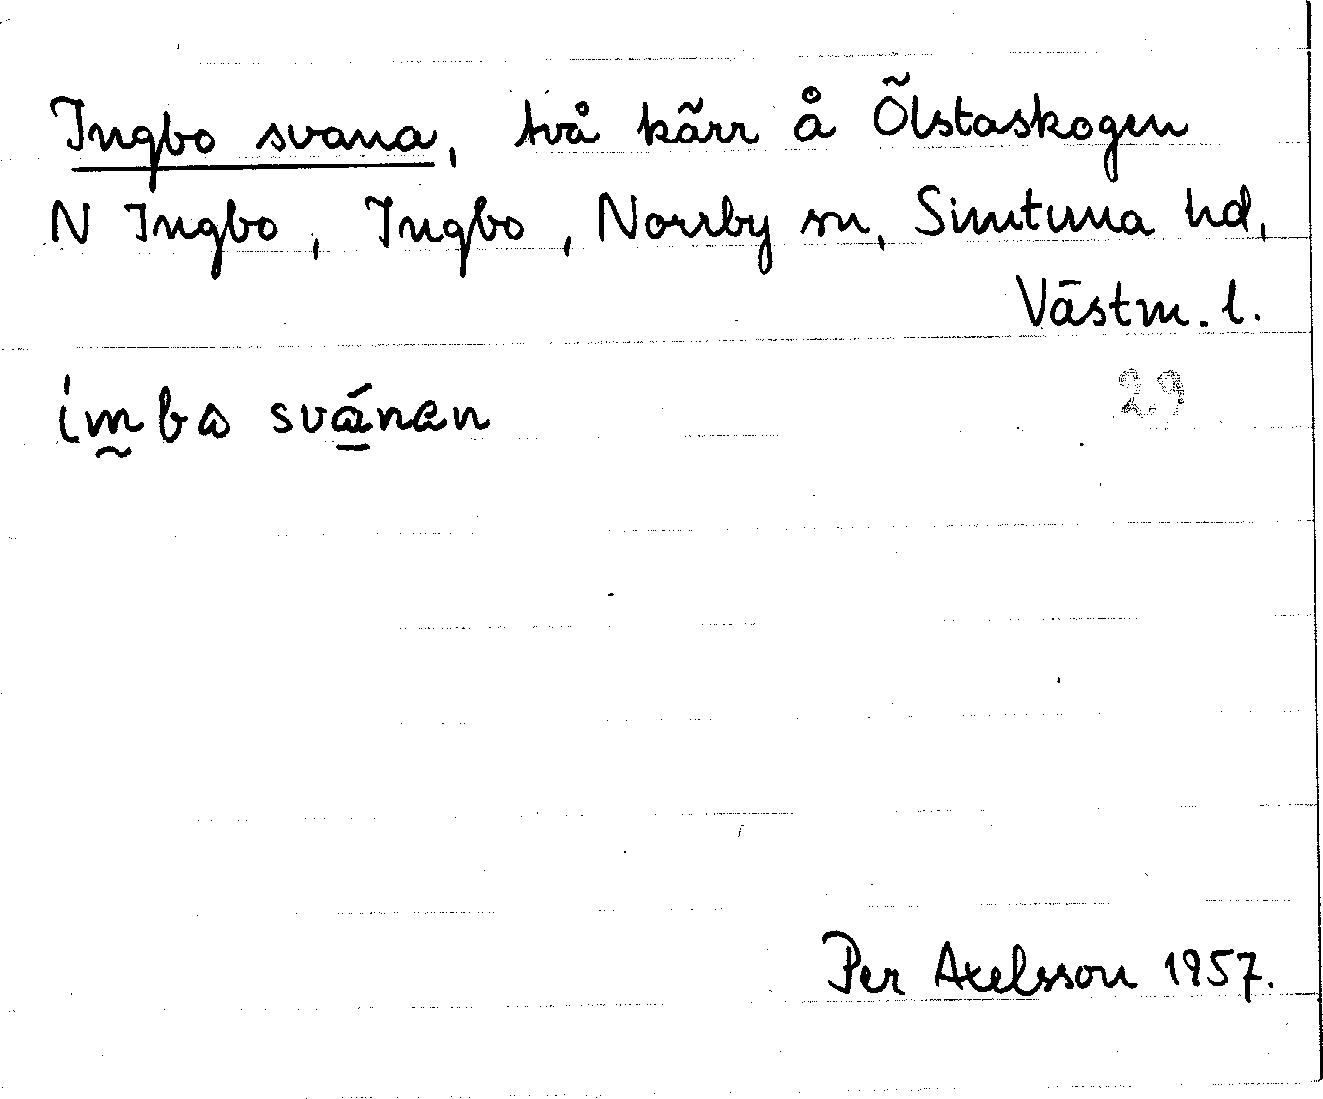 Ingbo svana, två kärr å Ölstaskogen
N Ingbo, Ingbo, Norrby sn, Simtuna hd,
Västm. l.
29
imba svánan
Per Axelsson 1957.